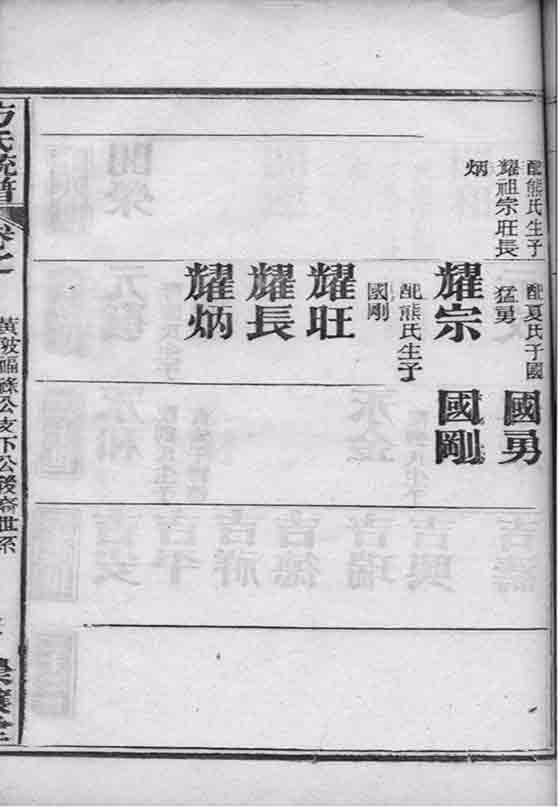 配熊氏生子
耀祖宗旺長
炳
配夏氏子國
猛勇
國勇
耀宗
配熊氏生子
國剛
國剛
耀旺
耀長
耀炳
方氏統譜
黃陂福緣公支下公後裔世系